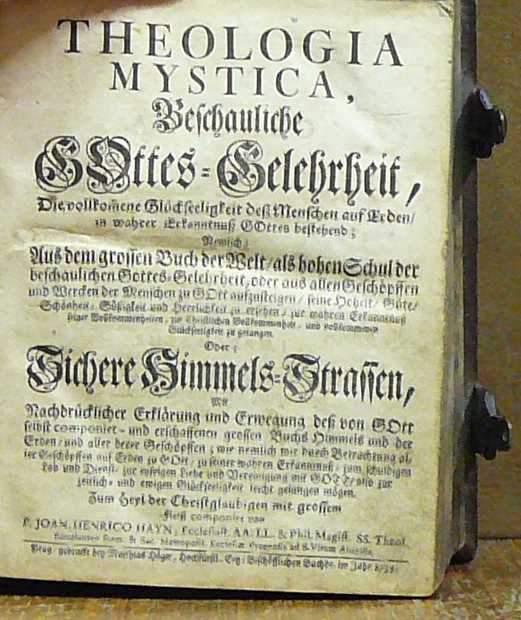 THEOLOGIA
MYSTICA,
Beschauliche
GOttes-Gelehrheit,
Die vollkom̃ene Glückseeligkeit deß Menschen auf Erden/
in wahrer Erkanntnuß GOttes bestehend;
Nemlich:
Aus dem grossen Buch der Welt/als hohen Schul der
beschaulichen Gottes-Gelehrheit, oder aus allen Geschöpffen
und Wercken der Menschen zu GOtt aufzusteigen/ seine Hoheit/ Güte/
Schönheit/ Süßigkeit und Herrlichkeit zu ersehen/ zur wahren Erkanntnuß
seiner Vollkommenheiten, zur Christlichen Vollkommenheit, und vollkommenen
Glückseeligkeit zu gelangen.
Oder:
Sichere Himmels-Strassen,
Mit
Nachdrücklicher Erklärung und Erwegung deß von GOtt
selbst componiert- und erschaffenen grossen Buchs Himmels und der
Erden/ und aller derer Geschöpffen; wie nemlich wir durch Betrachtung al-
ler Geschöpffen auf Erden zu GOtt/ zu seiner wahren Erkanntnuß/ zum schuldigen
Lob und Dienst, zur eyfrigen Liebe und Vereinigung mit GOTT/ also zur
zeitlich- und ewigen Glückseeligkeit leicht gelangen mögen.
Zum Heyl der Christglaubigen mit grossem
Fleiß componiert von
P. JOAN. HENRICO HAYN, Ecclesiast. AA. LL. & Phil. Magist. SS. Theol.
& Sac. Metropolit. Ecclesiæ Pragensis ad S. Vitum
Prag/ gedruckt bey Matthias Höger, Hochfürstl. Ertz-Bischöfflichen Buchdr. im Jahr